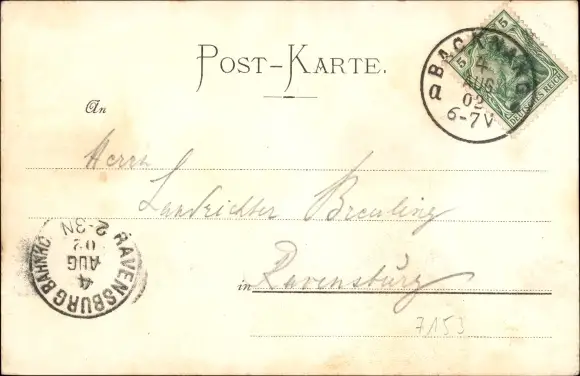 POST-KARTE.
5 5
DEUTSCHES REICH
BACKNANG
4
AUG
02
6-7V
a
An
Herrn
Landrichter Breuling
in Ravensburg
RAVENSBURG BAHNHO
4
AUG
02
2-3N
7153